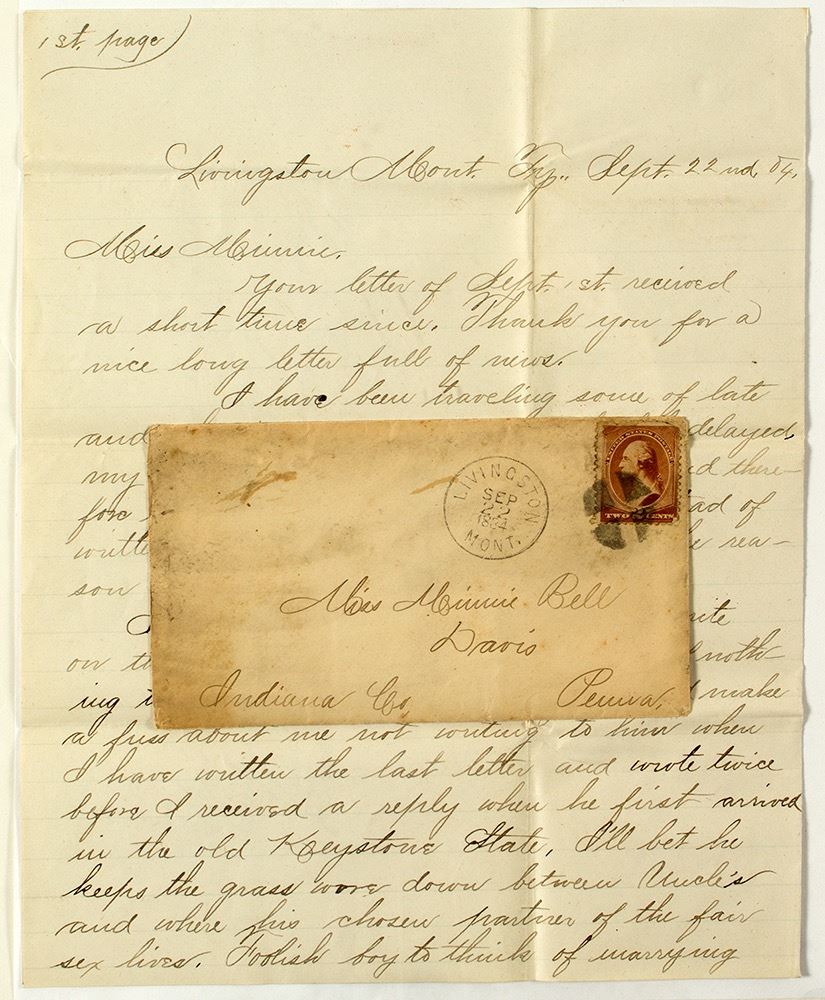 1st. page
Livingston Mont. Try., Sept. 22nd, 84.
Miss Minnie.
Your letter of Sept. 1st. received
a short time since. Thank you for a
nice long letter full of news.
I have been traveling some of late
and delayed
my there-
fore of
writte rea-
son
on noth-
ing make
a fuss about me not writing to him when
I have written the last letter and wrote twice
before I received a reply when he first arrived
in the old Keystone State, I'll bet he
keeps the grass wore down between Uncle's
and where his chosen partner of the fair
sex lives. Foolish boy to think of marrying
LIVINGSTON
SEP
22
1884
MONT.
UNITED STATES POSTAGE
TWO CENTS
Miss Minnie Bell
Davis
Indiana Co. Penna.